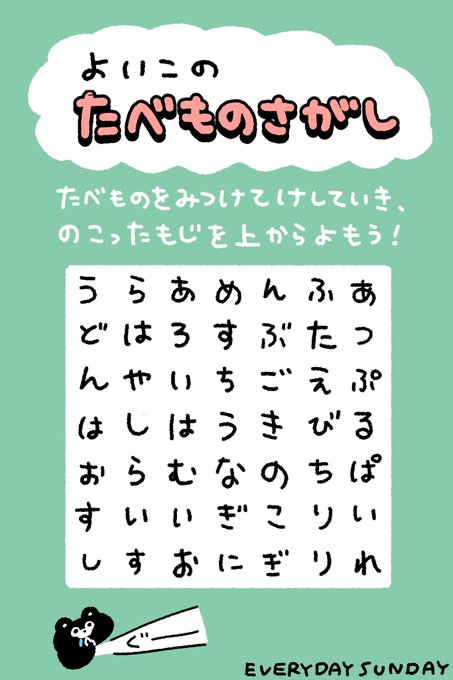 よいこの
たべものさがし
たべものをみつけてけしていき、
のこったもじを上からよもう!
うらあめんふあ
どはろすぶたつ
んやいちごえぷ
はしはうきびる
おらむなのちぱ
すいいぎこりい
しすおにぎりれ
ぐー
EVERYDAY SUNDAY